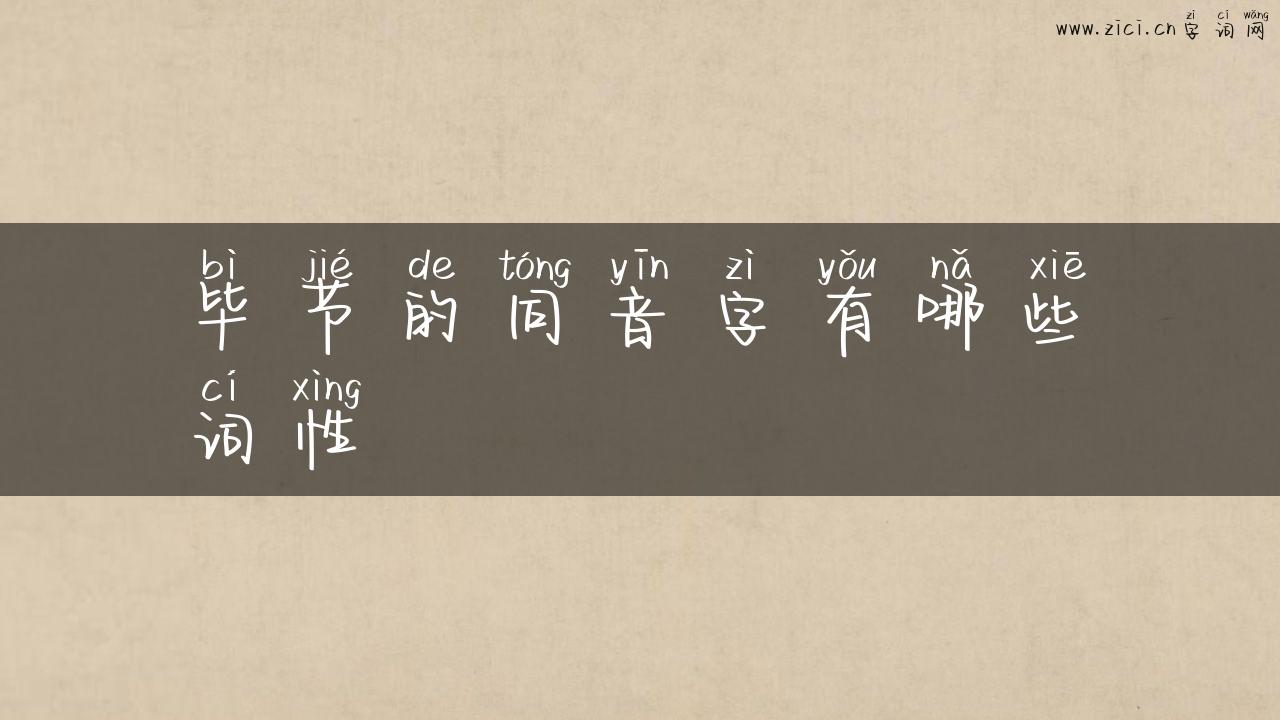 zì cí wǎng
www.zici.cn 字词网
bì jié de tóng yīn zì yǒu nǎ xiē
毕节的同音字有哪些
cí xìng
词性